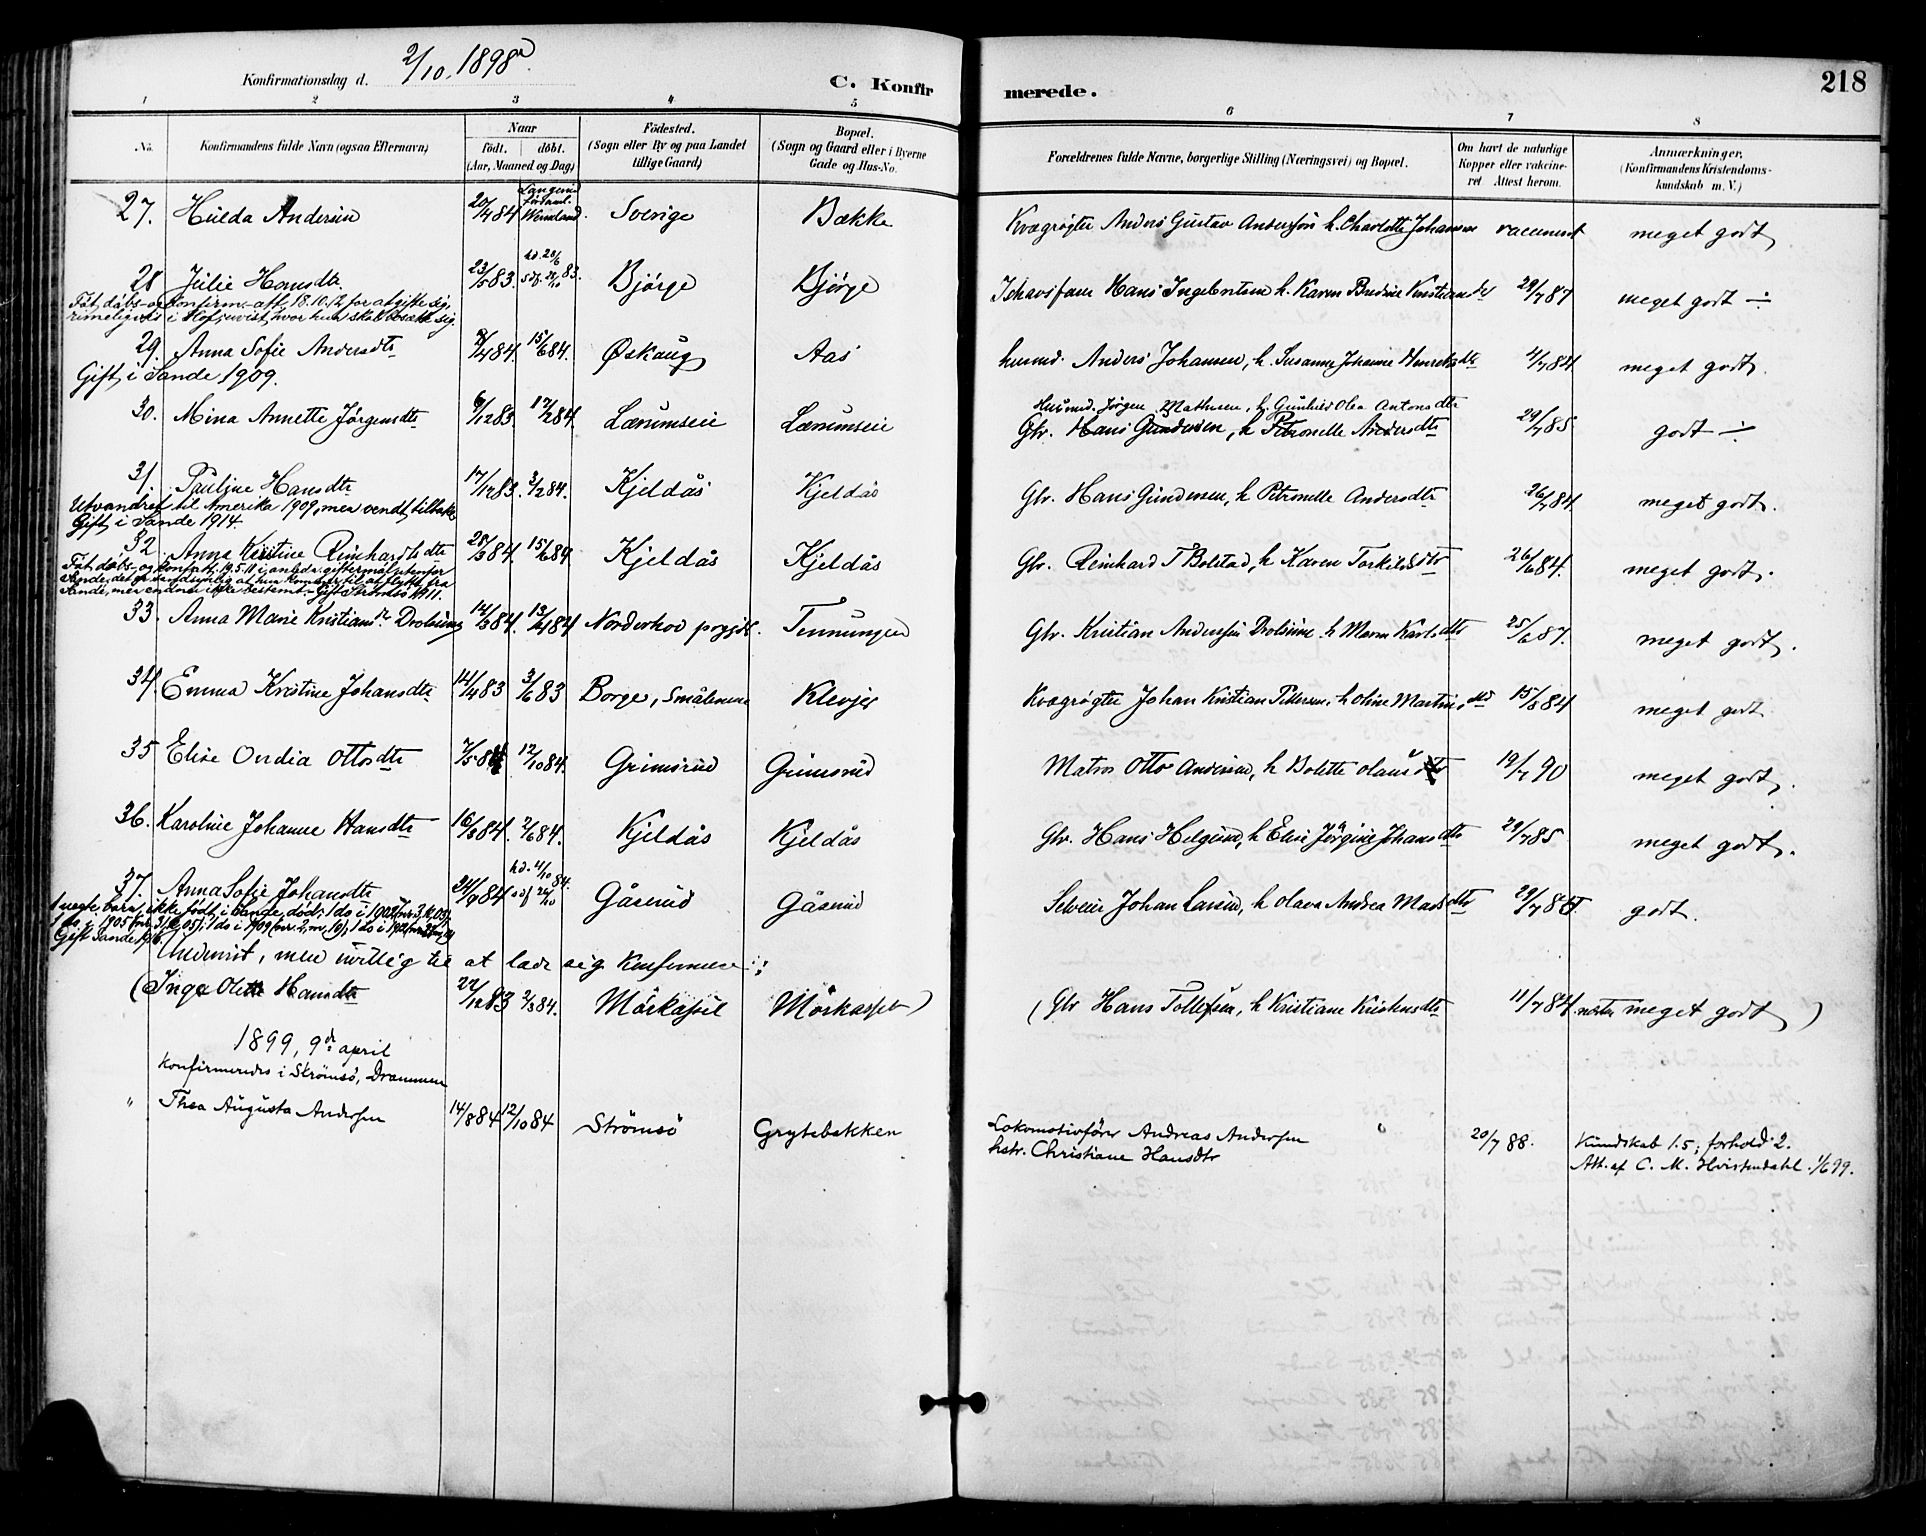 Konfirmationsdag d. 2/10. 1898.
C. Konfirmerede.
218
1 2 3 4 5 6 7 8
No.
Konfirmandens fulde Navn (ogsaa Efternavn)
Naar
født. døbt.
(Aar, Maaned og Dag)
Fødested.
(Sogn eller By og paa Landet
tillige Gaard)
Bopæl.
(Sogn og Gaard eller i Byerne
Gade og Hus-No.
Forældrenes fulde Navne, borgerlige Stilling (Næringsvei) og Bopæl.
Om havt de naturlige
Kopper eller vakcine-
ret Attest herom.
Anmærkninger,
(Konfirmandens Kristendoms-
kundskab m. V.)
27. Hilda Andersen 20/4 84 Sverige Bække Kvægrøgter Anders Gustav Andersson h. Charlotte Johansen meget godt
28 Julie Hansdtr. 23/5 83. hd. 20/6 83. Bjørge Bjørge Ishavsfarer Hans Ingebretsen h. Karen Bredine Kristiansdtr 29/7 87 meget godt ÷
Fåt dåbs- og konfirm.-att. 18.10.12 for at gifte sig,
rimeligvis i Hof, hvor hun skal bosætte sig.
29. Anna Sofie Andersdtr 84. 15/6 84. Øskaug Aas husmd. Anders Johansen, h. Susanne Johanne Henriksdtr 4/7 84 meget godt.
Gift i Sande 1909.
30. Mina Annette Jørgensdtr 6/12 83. 17/2 84. Lærumseie Lærumseie Husmd. Jørgen Mathisen, h. Gunhild Olea Antonsdtr
Gbr. Hans Gundersen, h Petronelle Andersdtr 29/7 85 godt ÷
31. Pauline Hansdtr 17/12 83. 3/2 84. Kjeldås Kjeldås Gbr. Hans Gundersen, h Petronelle Andersdtr 26/7 84 meget godt.
Utvandret til Amerika 1909, men vendt tilbake
Gift i Sande 1914.
32 Anna Kristine Reinhardtsdtr 28/3 84. 15/6 84. Kjeldås Kjeldås Gbr. Reinhard T Bolstad, h Karen Torkildsdtr 26/6 84. meget godt.
Fåt dåbs- og konf.att. 19.5.11 i anledn. giftermål utenfor
Sande, det er sandsynlig at hun kommer til at flytte fra
Sande, men endnu ikke bestemt. - Gift Strømsø 1911.
33. Anna Marie Kristiansdr Drolsum 14/3 84. 13/4 84 Norderhov prgjld. Tennungen Gbr. Kristian Andersen Drolsum h Maren Karlsdtr 25/6 87. meget godt.
34. Emma Kristine Johansdtr 14/4 83 3/6 83 Borge, Smålenene Klevjer Kvægrøgter Johan Kristian Pettersen, h Oline Martinsdtr 15/8 84 meget godt
35 Elise Ondia Ottosdtr 7/5 84 12/10 84. Grimsrud Grimsrud Matros Otto Andersen, h Bolette Olausdtr 19/7 90 meget godt.
36. Karoline Johanne Hansdtr 16/3 84. 2/6 84. Kjeldås Kjeldås Gbr. Hans Helgesen, h Elise Jörgine Johansdtr 29/7 85 meget godt.
37. Anna Sofie Johansdtr 24/9 84 hd. 4/10 84. Gåserud Gåserud Selveier Johan Larsen, h Olava Andrea Madsdtr godt.
1 uegte barn, ikke født i Sande, død;
Gift Sande 1916.
Undervist, men uvillig til at lade sig konfirmere:
(Inga Olette Hansdtr 22/12 83 2/3 84. Mörkassel Mörkassel) (Gbr Hans Tollefsen, h Kristiane Kristensdtr 11/7 84. næsten meget godt)
1899, 9de april
konfirmeredes i Strømsø, Drammen
" Thea Augusta Andersen 14/8 84 12/10 84 Strömsö Grytebakken Lokomotivfører Andreas Andersen
hstr. Christiane Hansdtr 20/7 88. Kundskab 1.5; forhold 2.
Att. af C. M. Hvistendahl. 1/6 99.